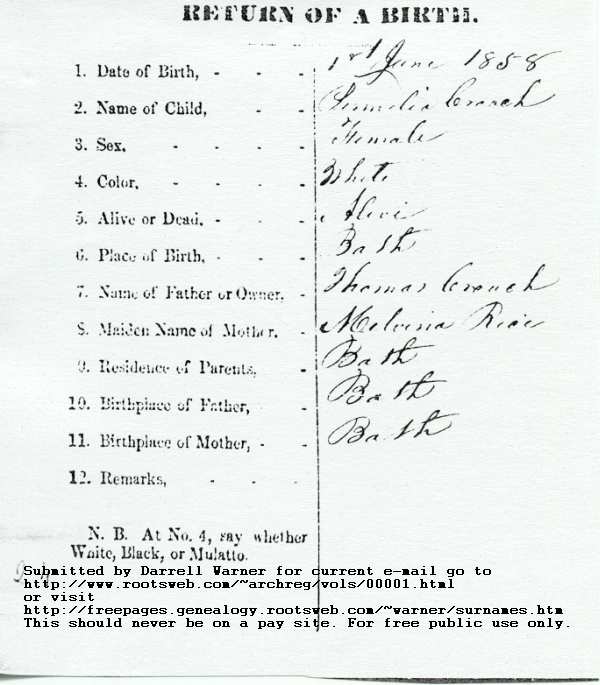 RETURN OF A BIRTH.
1. Date of Birth, - - - 1st June 1858
2. Name of Child, - - Crouch
3. Sex, - - - - Female
4. Color, - - - - White
5. Alive or Dead, - - - Alive
6. Place of Birth, - - - Bath
7. Name of Father or Owner, - Thomas Crouch
8. Maiden Name of Mother. - Melvina Rice
9. Residence of Parents, - Bath
10. Birthplace of Father, - Bath
11. Birthplace of Mother, - - Bath
12. Remarks, - - -
N. B. At No. 4, say whether
White, Black, or Mulatto.
Submitted by Darrell Warner for current e-mail go to
http://www.rootsweb.com/~archreg/vols/00001.html
or visit
http://freepages.genealogy.rootsweb.com/~warner/surnames.htm
This should never be on a pay site. For free public use only.